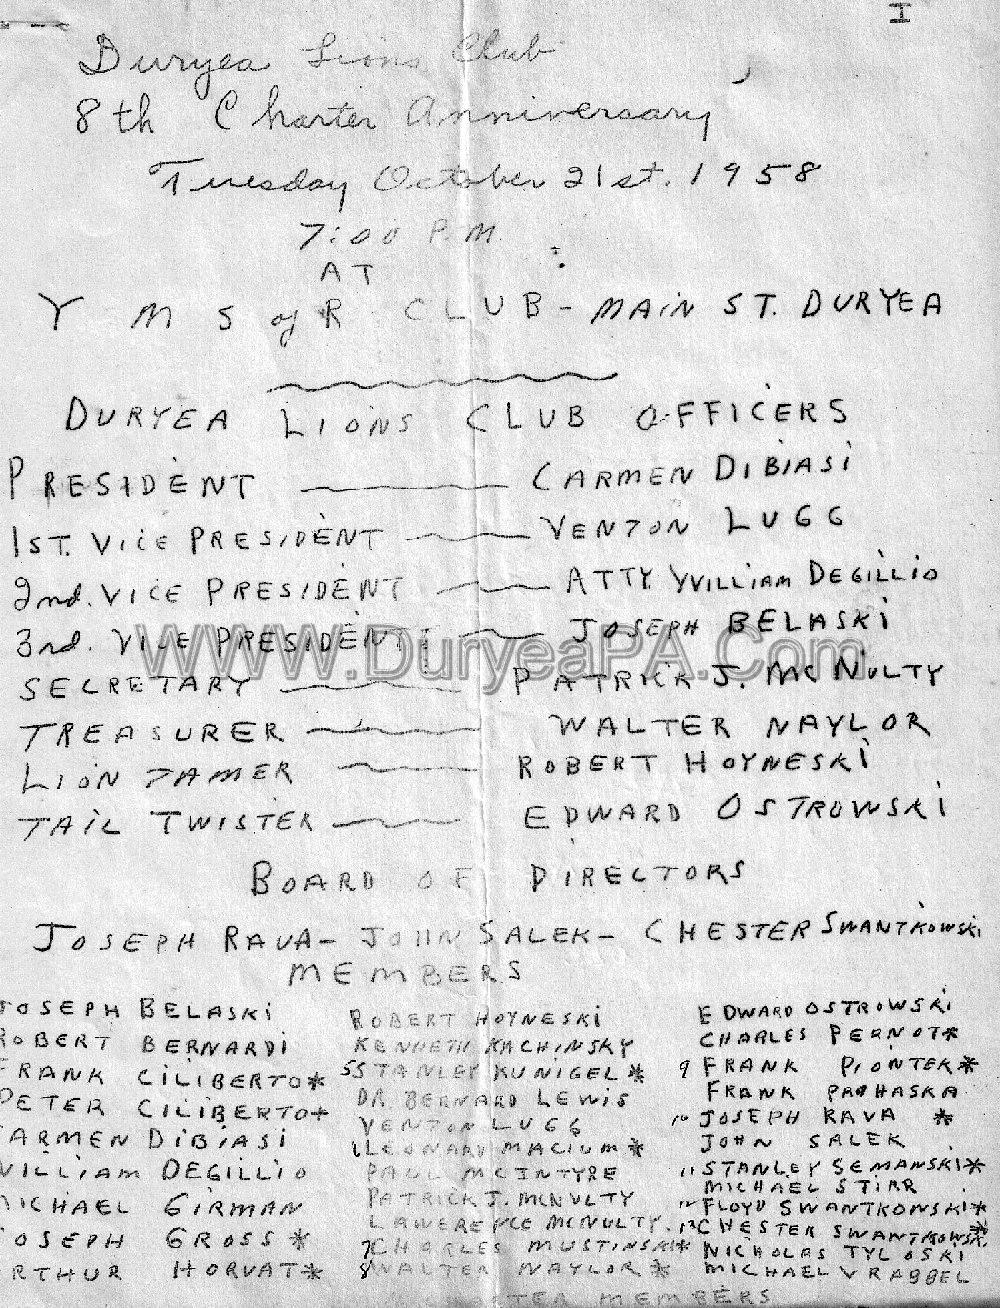 I
Duryea Lions Club
8th Charter Anniversary
Tuesday October 21st. 1958
7:00 P.M.
AT
Y M S of R CLUB - MAIN ST. DURYEA
DURYEA LIONS CLUB OFFICERS
PRESIDENT CARMEN DIBIASI
1ST. VICE PRESIDENT VENTON LUGG
2nd. VICE PRESIDENT ATTY WILLIAM DEGILLIO
3rd. VICE PRESIDENT JOSEPH BELASKI
WWW.DuryeaPA.Com
SECRETARY PATRICK J. MCNULTY
TREASURER WALTER NAYLOR
LION TAMER ROBERT HOYNESKI
TAIL TWISTER EDWARD OSTROWSKI
BOARD OF DIRECTORS
JOSEPH RAVA - JOHN SALEK - CHESTER SWANTKOWSKI
MEMBERS
JOSEPH BELASKI
ROBERT BERNARDI
FRANK CILIBERTO*
PETER CILIBERTO*
CARMEN DIBIASI
WILLIAM DEGILLIO
MICHAEL GIRMAN
JOSEPH GROSS *
ARTHUR HORVAT*
ROBERT HOYNESKI
KENNETH KACHINSKY
5 STANLEY KUNIGEL *
DR BERNARD LEWIS
VENTON LUGG
6 LEONARD MACIUM *
PAUL MCINTYRE
PATRICK J. MCNULTY
LAWERENCE MCNULTY
7 CHARLES MUSTINSKI*
8 WALTER NAYLOR *
EDWARD OSTROWSKI
CHARLES PERNOT*
9 FRANK PIONTEK*
FRANK PROHASKA
10 JOSEPH RAVA *
JOHN SALEK
11 STANLEY SEMANSKI*
MICHAEL STIRR
12 FLOYD SWANTKOWSKI*
13 CHESTER SWANTKOWSKI*
NICHOLAS TYLOSKI
MICHAEL VRABBEL
CHARTER MEMBERS